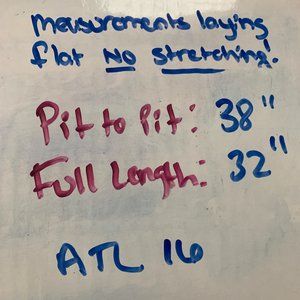 measurements laying
flat NO stretching.
Pit to Pit: 38"
Full Length: 32"
ATL 16